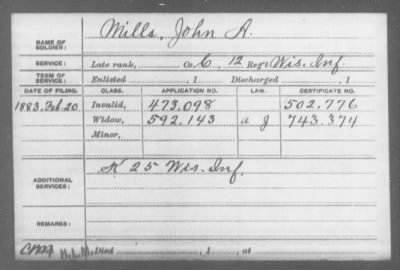 NAME OF SOLDIER: Mills, John A.
SERVICE: Late rank, Co. C, 12 Reg't Wis. Inf.
TERM OF SERVICE: Enlisted , 1 Discharged , 1
DATE OF FILING. CLASS. APPLICATION NO. LAW. CERTIFICATE NO.
1883, Feb. 20 Invalid, 473.098 502.776
Widow, 592.143 a J 743.374
Minor,
ADDITIONAL SERVICES: K 25 Wis. Inf.
REMARKS:
H.L.M. Died , 1 , at